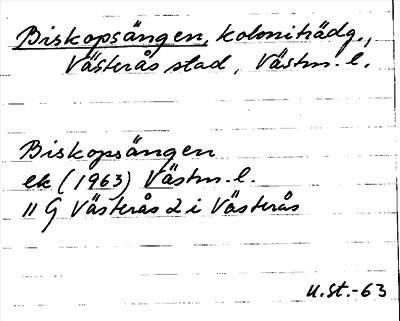 Biskopsängen, koloniträdg.,
Västerås stad, Västm. l.
Biskopsängen
ek (1963) Västm. l.
11 G Västerås 2 i Västerås
U.St.-63